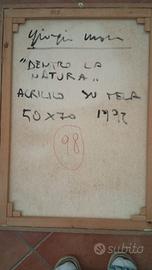 "DENTRO LA
NATURA"
ACRILICO SU TELA
50X70 1992
98
subito